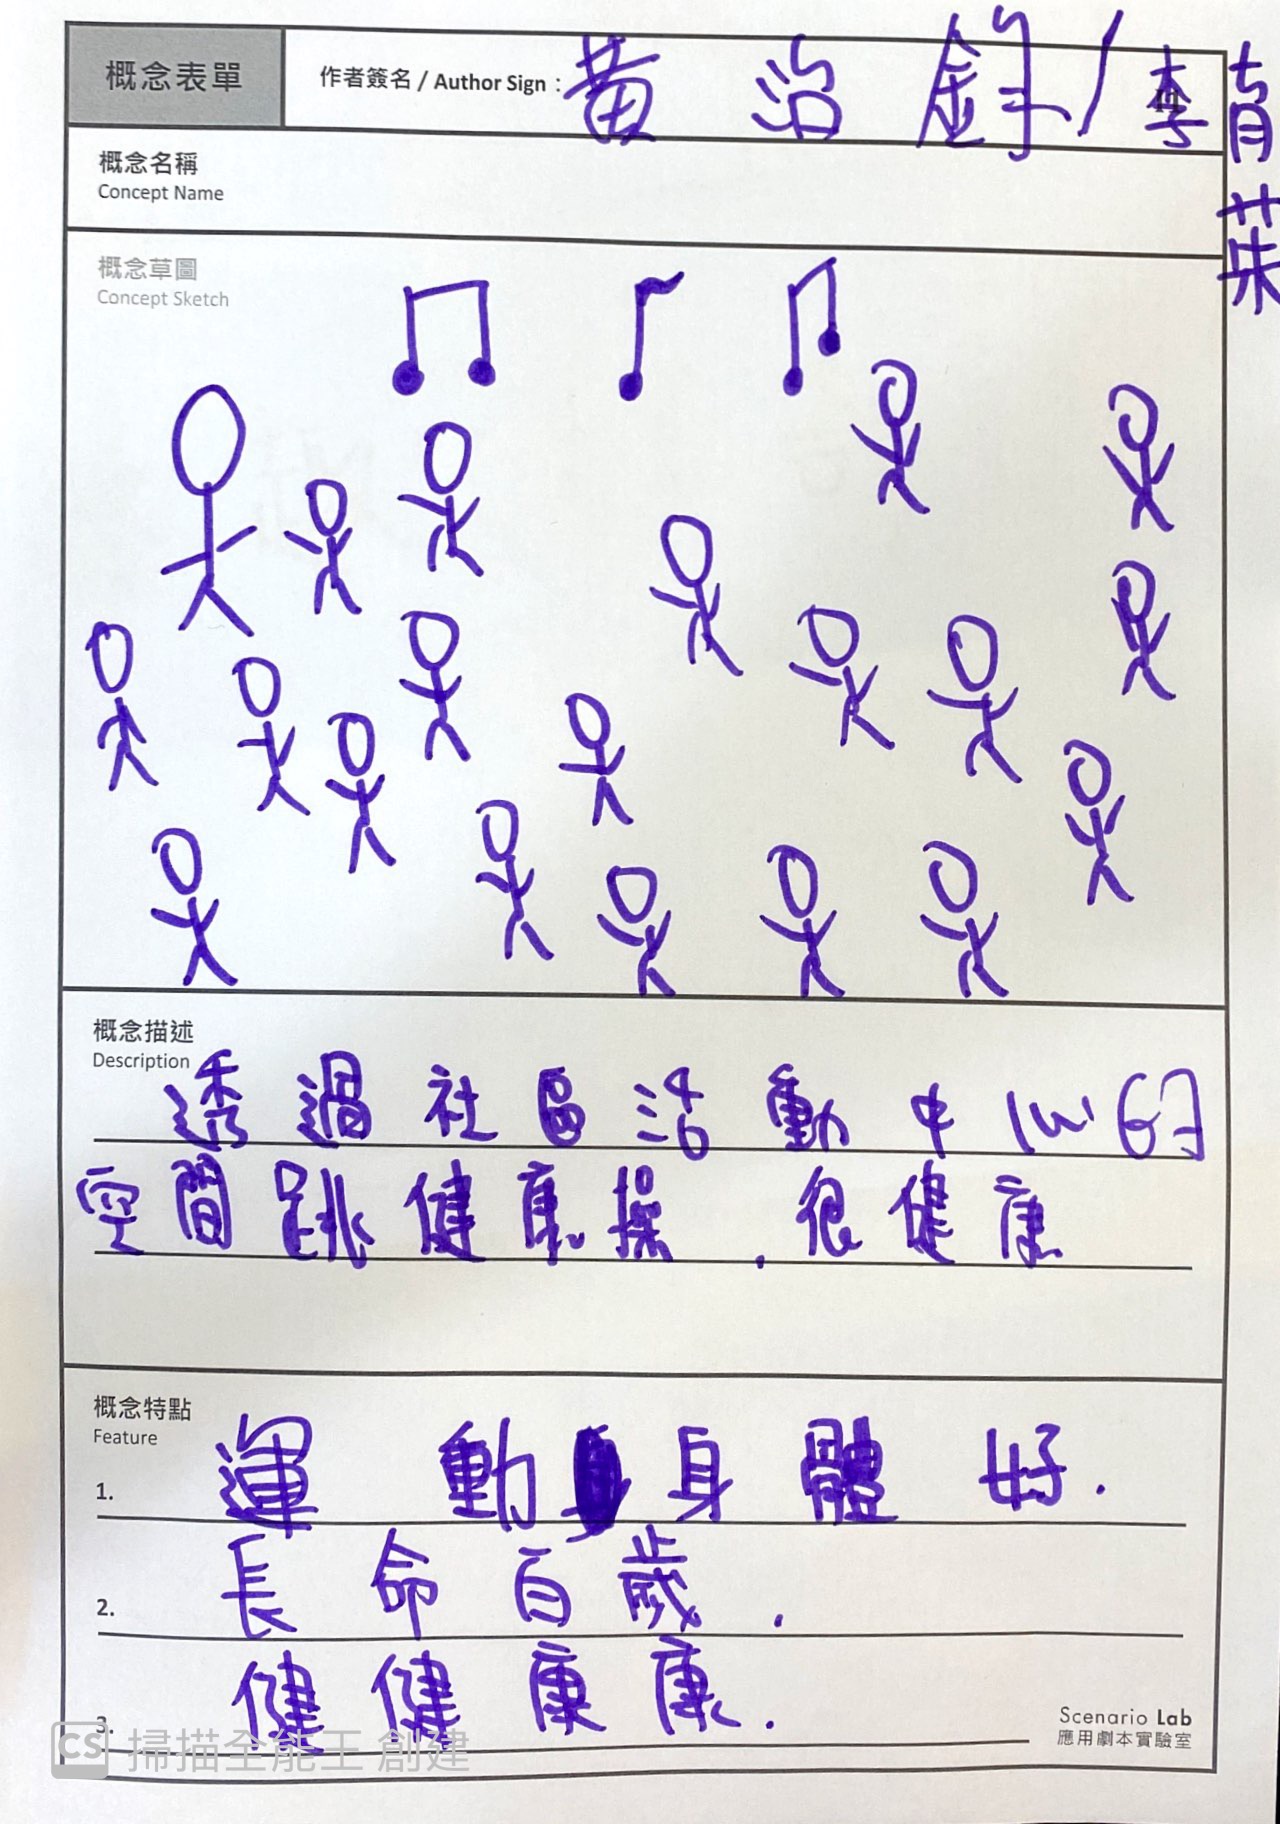 概念表單
作者簽名 / Author Sign : 黃治錚 / 李肯菜
概念名稱
Concept Name
概念草圖
Concept Sketch
概念描述
Description
透過社區活動中心的
空間跳健康操.很健康
概念特點
Feature
1. 運動身體好.
2. 長命百歲.
3. 健健康康.
Scenario Lab
應用劇本實驗室
CS 掃描全能王 創建